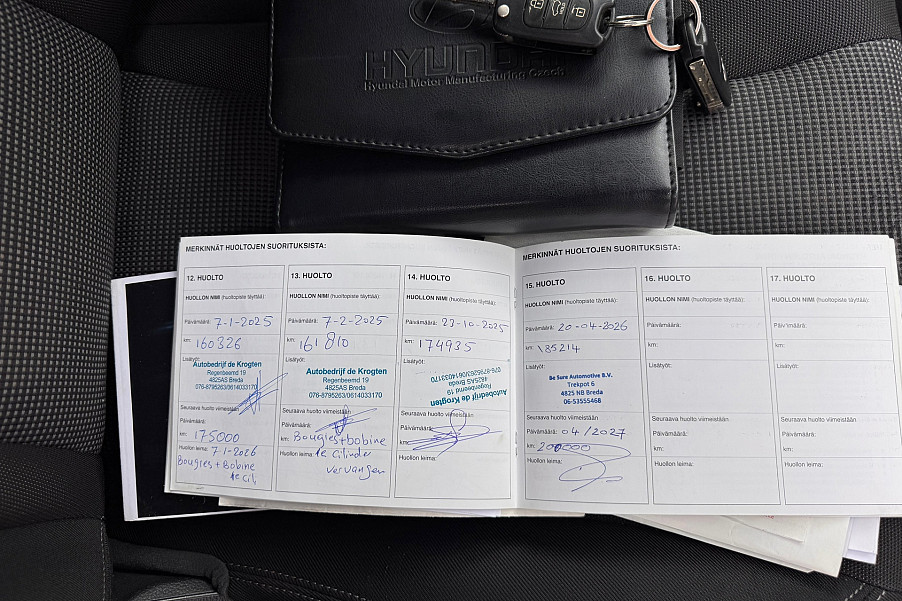 HYUNDAI
Hyundai Motor Manufacturing Czech
MERKINNÄT HUOLTOJEN SUORITUKSISTA:
12. HUOLTO
HUOLLON NIMI (huoltopiste täyttää):
Päivämäärä: 7-1-2025
km: 160326
Lisätyöt:
Autobedrijf de Krogten
Regenbeemd 19
4825AS Breda
076-8795263/0614033170
Seuraava huolto viimeistään
Päivämäärä:
km: 175000
Huollon leima: 7-1-2026
Bougies + Bobine
1e Cili
13. HUOLTO
HUOLLON NIMI (huoltopiste täyttää):
Päivämäärä: 7-2-2025
km: 161810
Lisätyöt:
Autobedrijf de Krogten
Regenbeemd 19
4825AS Breda
076-8795263/0614033170
Seuraava huolto viimeistään
Päivämäärä:
km: Bougies + bobine
Huollon leima: 1e Cilinder
vervangen
14. HUOLTO
HUOLLON NIMI (huoltopiste täyttää):
Päivämäärä: 23-10-2025
km: 174935
Lisätyöt:
Autobedrijf de Krogten
Regenbeemd 19
4825AS Breda
076-8795263/0614033170
Seuraava huolto viimeistään
Päivämäärä:
km:
Huollon leima:
MERKINNÄT HUOLTOJEN SUORITUKSISTA:
15. HUOLTO
HUOLLON NIMI (huoltopiste täyttää):
Päivämäärä: 20-04-2026
km: 185214
Lisätyöt:
Be Sure Automotive B.V.
Trekpot 6
4825 NB Breda
06-53555468
Seuraava huolto viimeistään
Päivämäärä: 04/2027
km: 200000
Huollon leima:
16. HUOLTO
HUOLLON NIMI (huoltopiste täyttää):
Päivämäärä:
km:
Lisätyöt:
Seuraava huolto viimeistään
Päivämäärä:
km:
Huollon leima:
17. HUOLTO
HUOLLON NIMI (huoltopiste täyttää):
Päivämäärä:
km:
Lisätyöt:
Seuraava huolto viimeistään
Päivämäärä:
km:
Huollon leima: